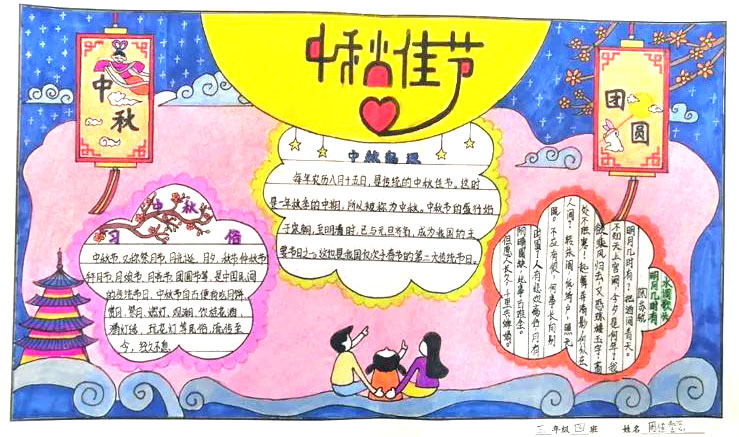 中秋佳节
中秋
团圆
中秋起源
每年农历八月十五日,是传统的中秋佳节。这时
是一年秋季的中期,所以被称为中秋。中秋节的盛行始
于宋朝,至明清时,已与元旦齐名,成为我国的主
要节日之一。这也是我国仅次于春节的第一大传统节日。
中秋
习俗
中秋节,又称祭月节、月光诞、月夕、秋节、仲秋节、
拜月节、月娘节、月亮节、团圆节等,是中国民间
的传统节日。中秋节自古便有吃月饼、
赏月、祭月、燃灯、观潮、饮桂花酒、
猜灯谜、玩花灯等民俗,流传至
今,经久不息。
水调歌头
明月几时有
明月几时有?把酒问青天。
不知天上宫阙,今夕是何年?我
欲乘风归去,又恐琼楼玉宇,高
处不胜寒!起舞弄清影,何似在
人间?转朱阁,低绮户,照无
眠。不应有恨,何事长向别
时圆?人有悲欢离合,月有
阴晴圆缺,此事古难全。
但愿人长久,千里共婵娟。
三年级四班 姓名